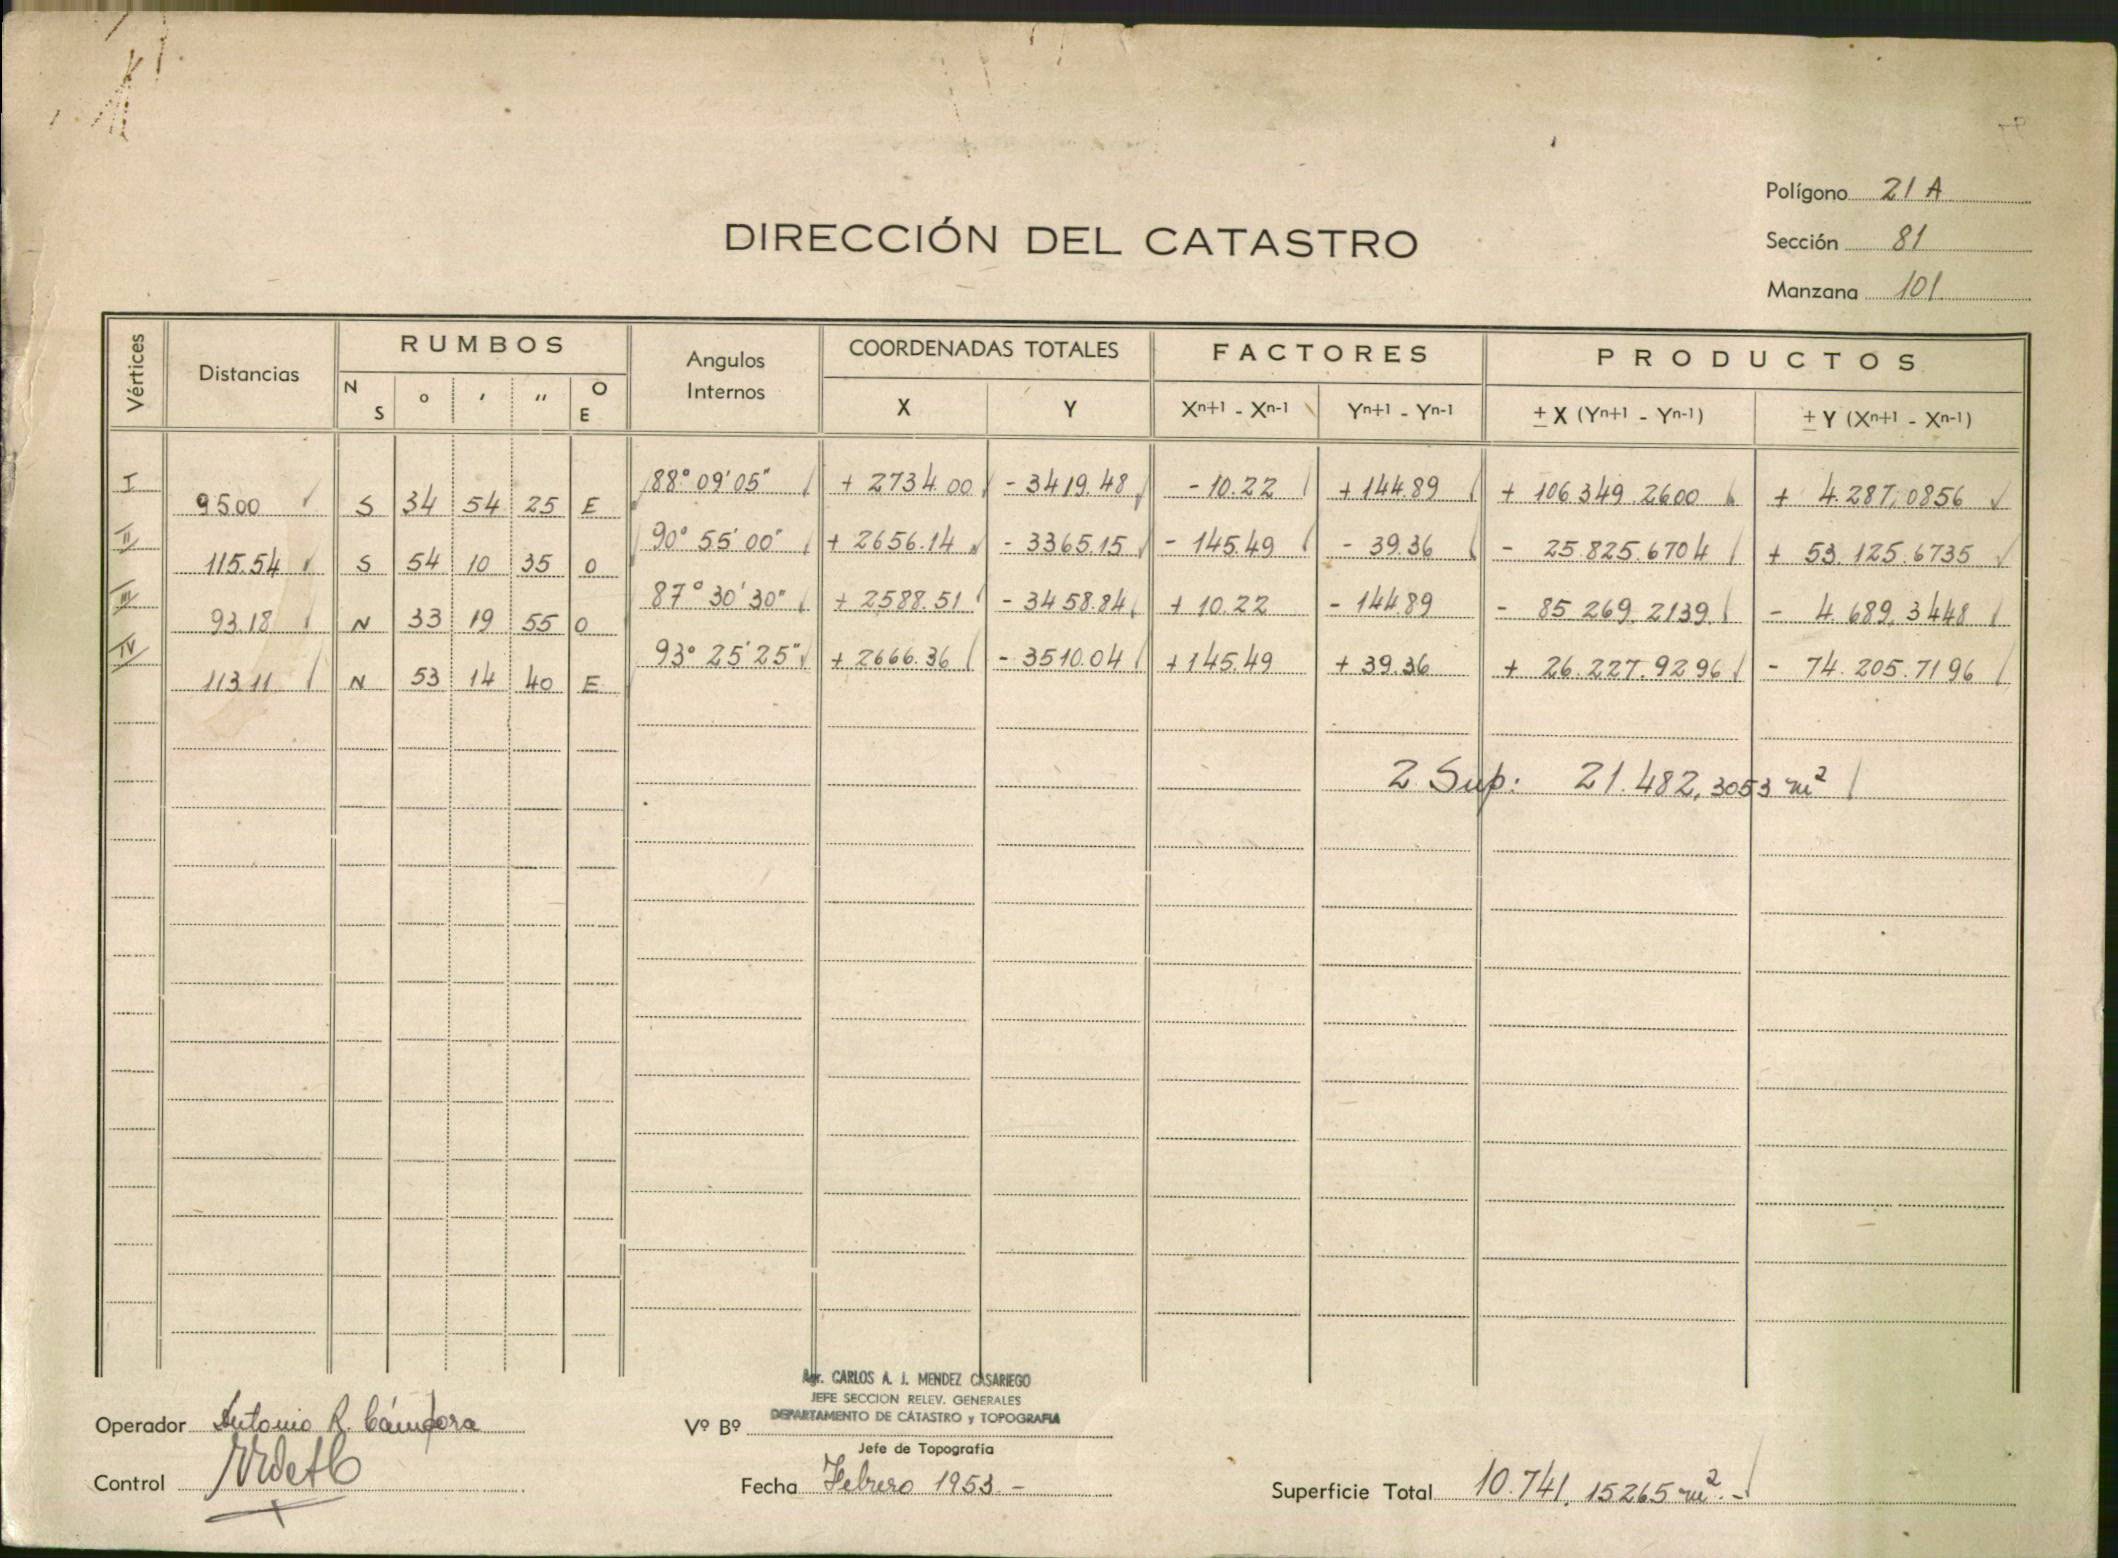 Polígono 21 A
DIRECCIÓN DEL CATASTRO
Sección 81
Manzana 101
Vértices Distancias RUMBOS Angulos Internos COORDENADAS TOTALES FACTORES PRODUCTOS
N S ° ' " O E X Y Xⁿ⁺¹ - Xⁿ⁻¹ Yⁿ⁺¹ - Yⁿ⁻¹ ± X (Yⁿ⁺¹ - Yⁿ⁻¹) ± Y (Xⁿ⁺¹ - Xⁿ⁻¹)
I 88° 09' 05" + 2734.00 - 3419.48 - 10.22 + 144.89 + 106.349.2600 + 4.287,0856
95.00 S 34 54 25 E
II 90° 55' 00" + 2656.14 - 3365.15 - 145.49 - 39.36 - 25.825.6704 + 53.125.6735
115.54 S 54 10 35 O
III 87° 30' 30" + 2588.51 - 3458.84 + 10.22 - 144.89 - 85.269.2139 - 4.689,3448
93.18 N 33 19 55 O
IV 93° 25' 25" + 2666.36 - 3510.04 + 145.49 + 39.36 + 26.227.9296 - 74.205.7196
113.11 N 53 14 40 E
2 Sup: 21.482,3053 m²
Agr. CARLOS A. J. MENDEZ CASARIEGO
JEFE SECCION RELEV. GENERALES
DEPARTAMENTO DE CATASTRO y TOPOGRAFIA
Operador Antonio R. Cámpora
Vº Bº
Jefe de Topografía
Control
Fecha Febrero 1953.-
Superficie Total 10.741,15265 m².-